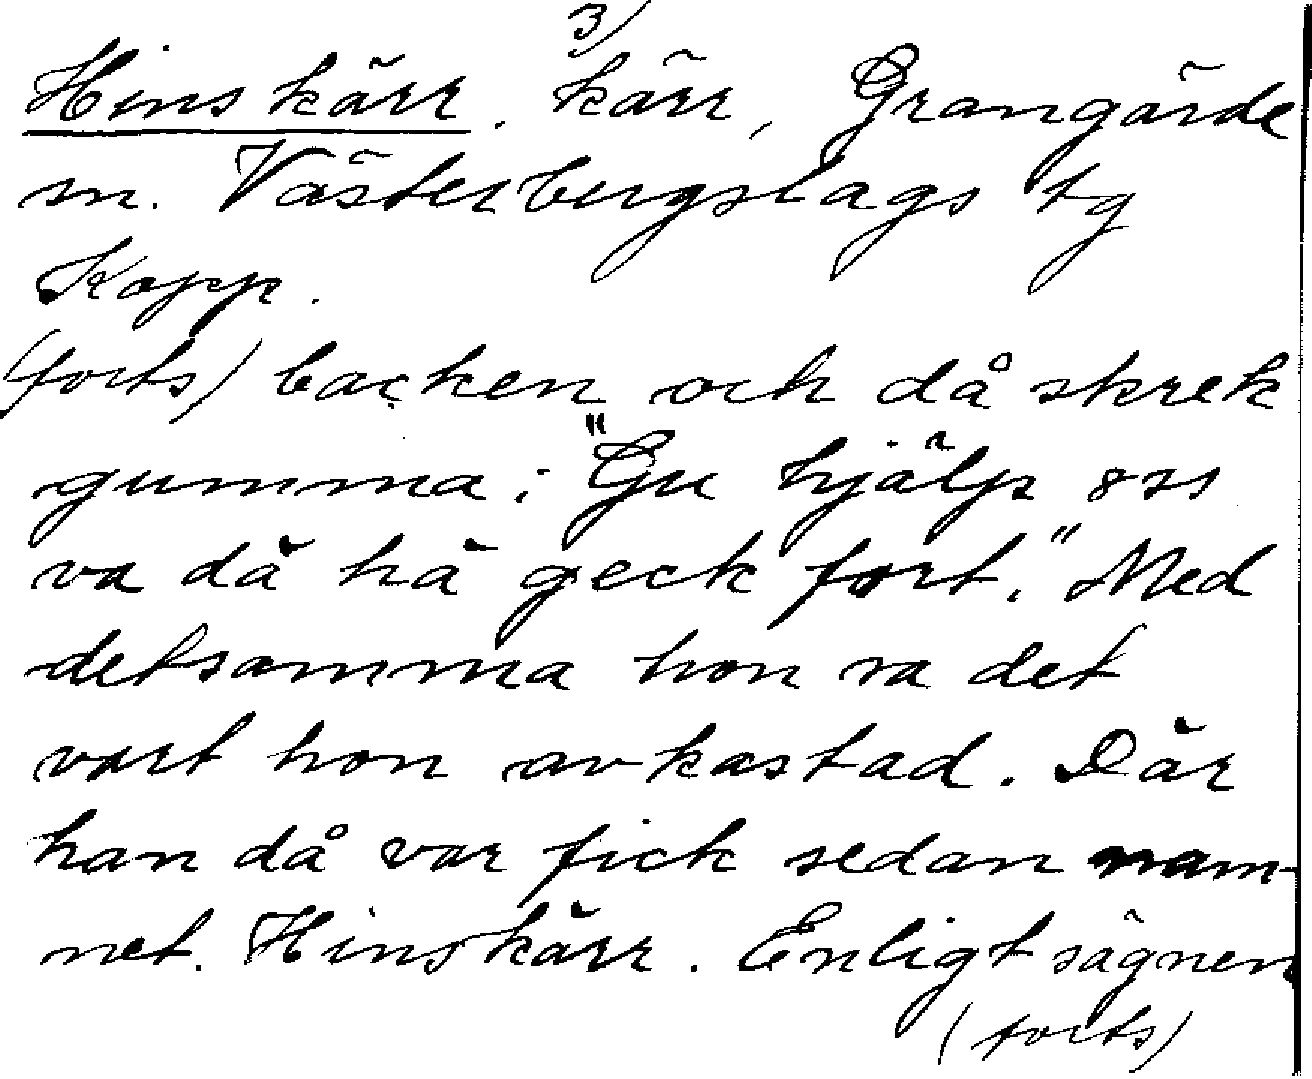 3)
Hinskärr. kärr, Grangärde
sn. Västerbergslags tg
Kopp.
(forts) backen och då skrek
gumma: "Gu hjälp oss
va då hä geck fort." Med
detsamma hon sa det
vart hon avkastad. Där
han då var fick sedan nam-
net. Hinskärr. Enligt sägnen
(forts)